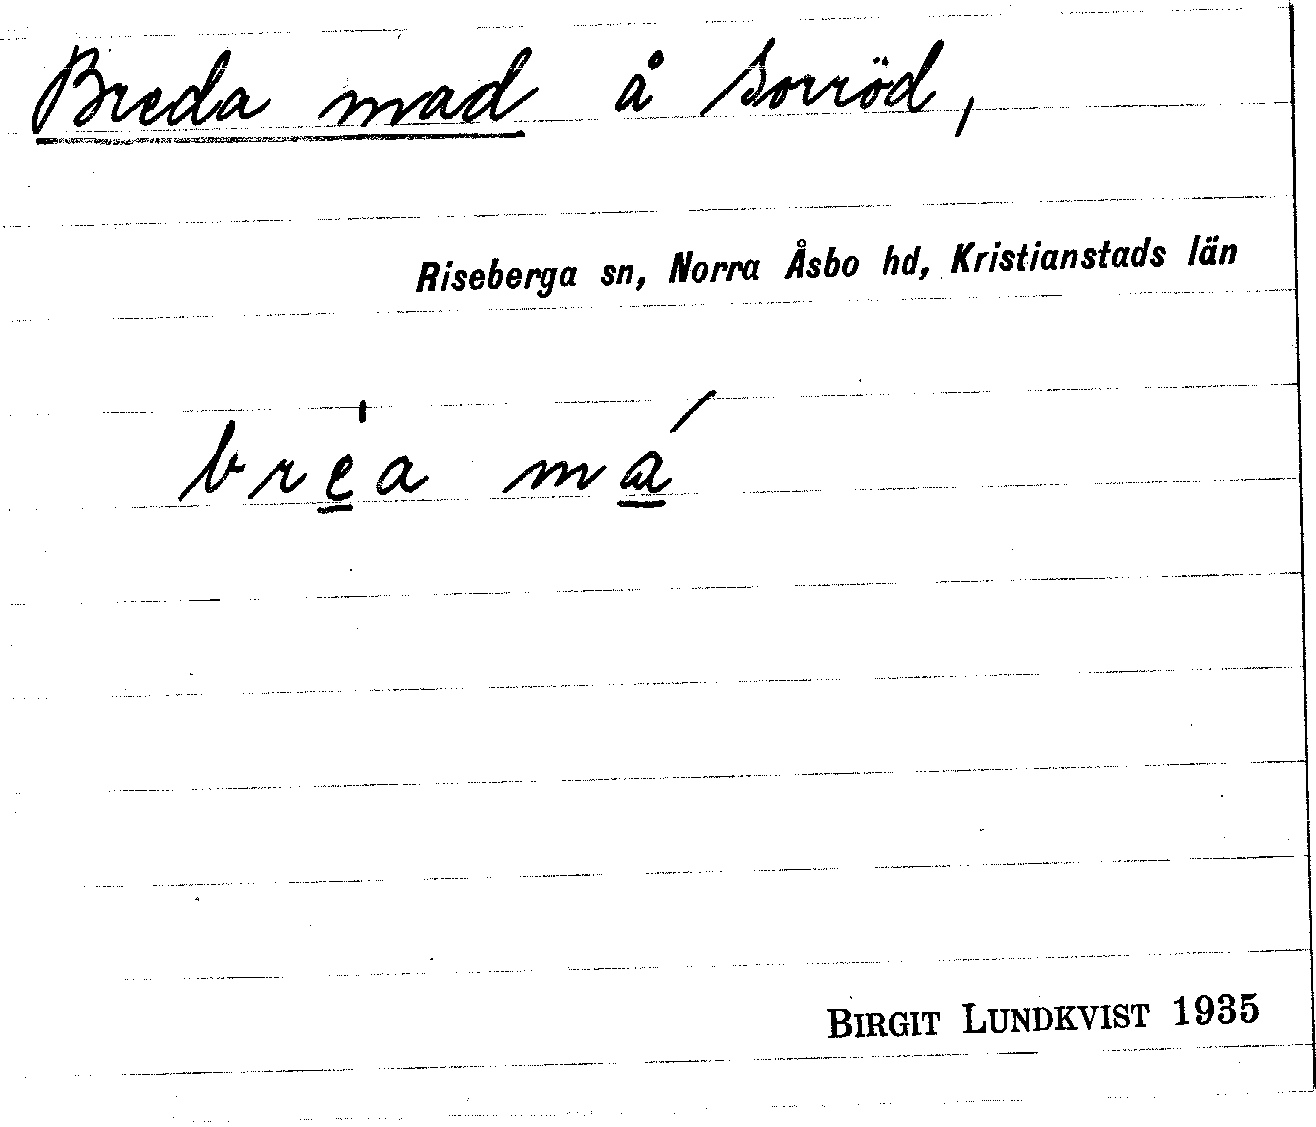 Breda mad å Sorröd,
Riseberga sn, Norra Åsbo hd, Kristianstads län
brea ma
BIRGIT LUNDKVIST 1935